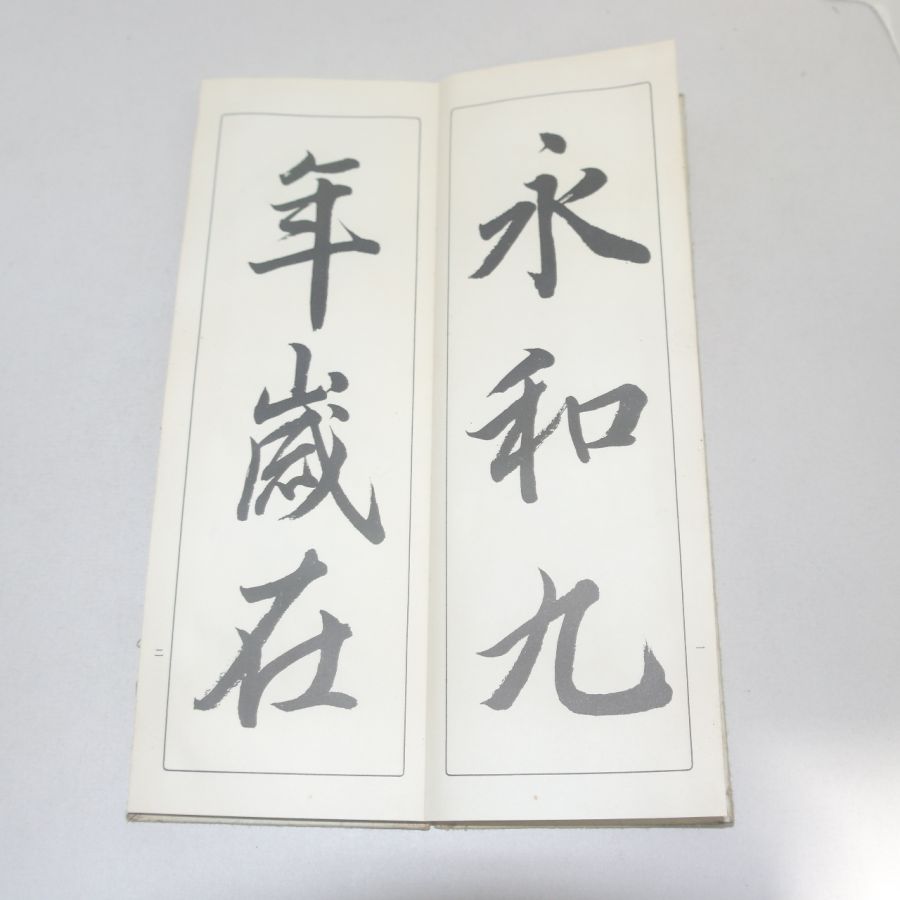 永和九
一
年歲在
二